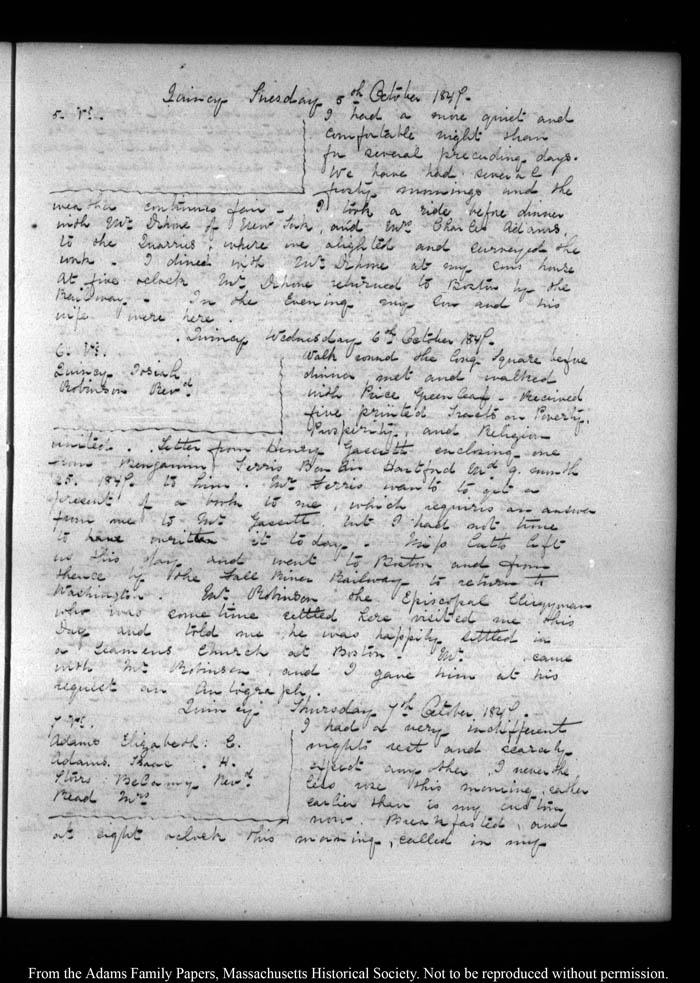 Quincy Tuesday 5th October 1847.
5. VI.
I had a more quiet and
comfortable night than
for several preceding days.
We have had several
frosty mornings and the
weather continues fair - I took a ride before dinner
with Mr of New York, and Mrs Charles Adams,
to the Quarries, where we alighted and surveyed the
work - I dined with Mr at my sons house
At five oclock Mr returned to Boston by the
Railway - In the Evening my Son and his
wife were here.
Quincy Wednesday 6th October 1847.
6. VI.
Quincy Josiah
Robinson Revd
Walk round the long Square before
dinner met and walked
with Price Greenleaf - Received
five printed Tracts on Poverty,
Prosperity, and Religion
united. Letter from Henry Gassett enclosing one
from Benjamin Ferris Hartford 9. month
25. 1847 to him. Mr Ferris wants to get a
present of a book to me, which requires an answer
from me to Mr Gassett, but I had not time
to have written it to day - Miss Cutts left
us this day and went to Boston and from
thence by the Fall River Railway to return to
Washington. Mr Robinson the Episcopal Clergyman
who was sometime settled here visited me this
Day and told me he was happily settled in
a Seamens Church at Boston - Mr. came
with Mr Robinson, and I gave him at his
request an Autograph.
Quincy Thursday 7th October 1847.
7 VI.
Adams Elizabeth: C.
Adams. Isaac. H.
Storrs Revd
Read Mrs
I had a very indifferent
nights rest and scarcely
expect any other, I neverthe
less rose this morning
earlier than is my custom
now. Breakfasted, and
at eight oclock this morning, called in my
From the Adams Family Papers, Massachusetts Historical Society. Not to be reproduced without permission.